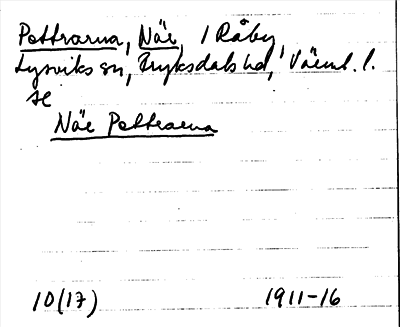 Pottrarna, Näe, i Råby,
Lysviks sn, Fryksdals hd, Värml. l.
se
Näe Pottrarna
10(17) 1911-16